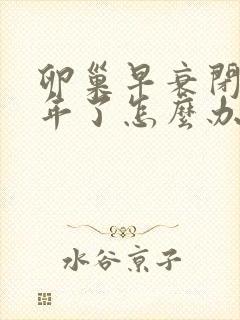 卵巢早衰閉
年了怎麼办
水谷京子